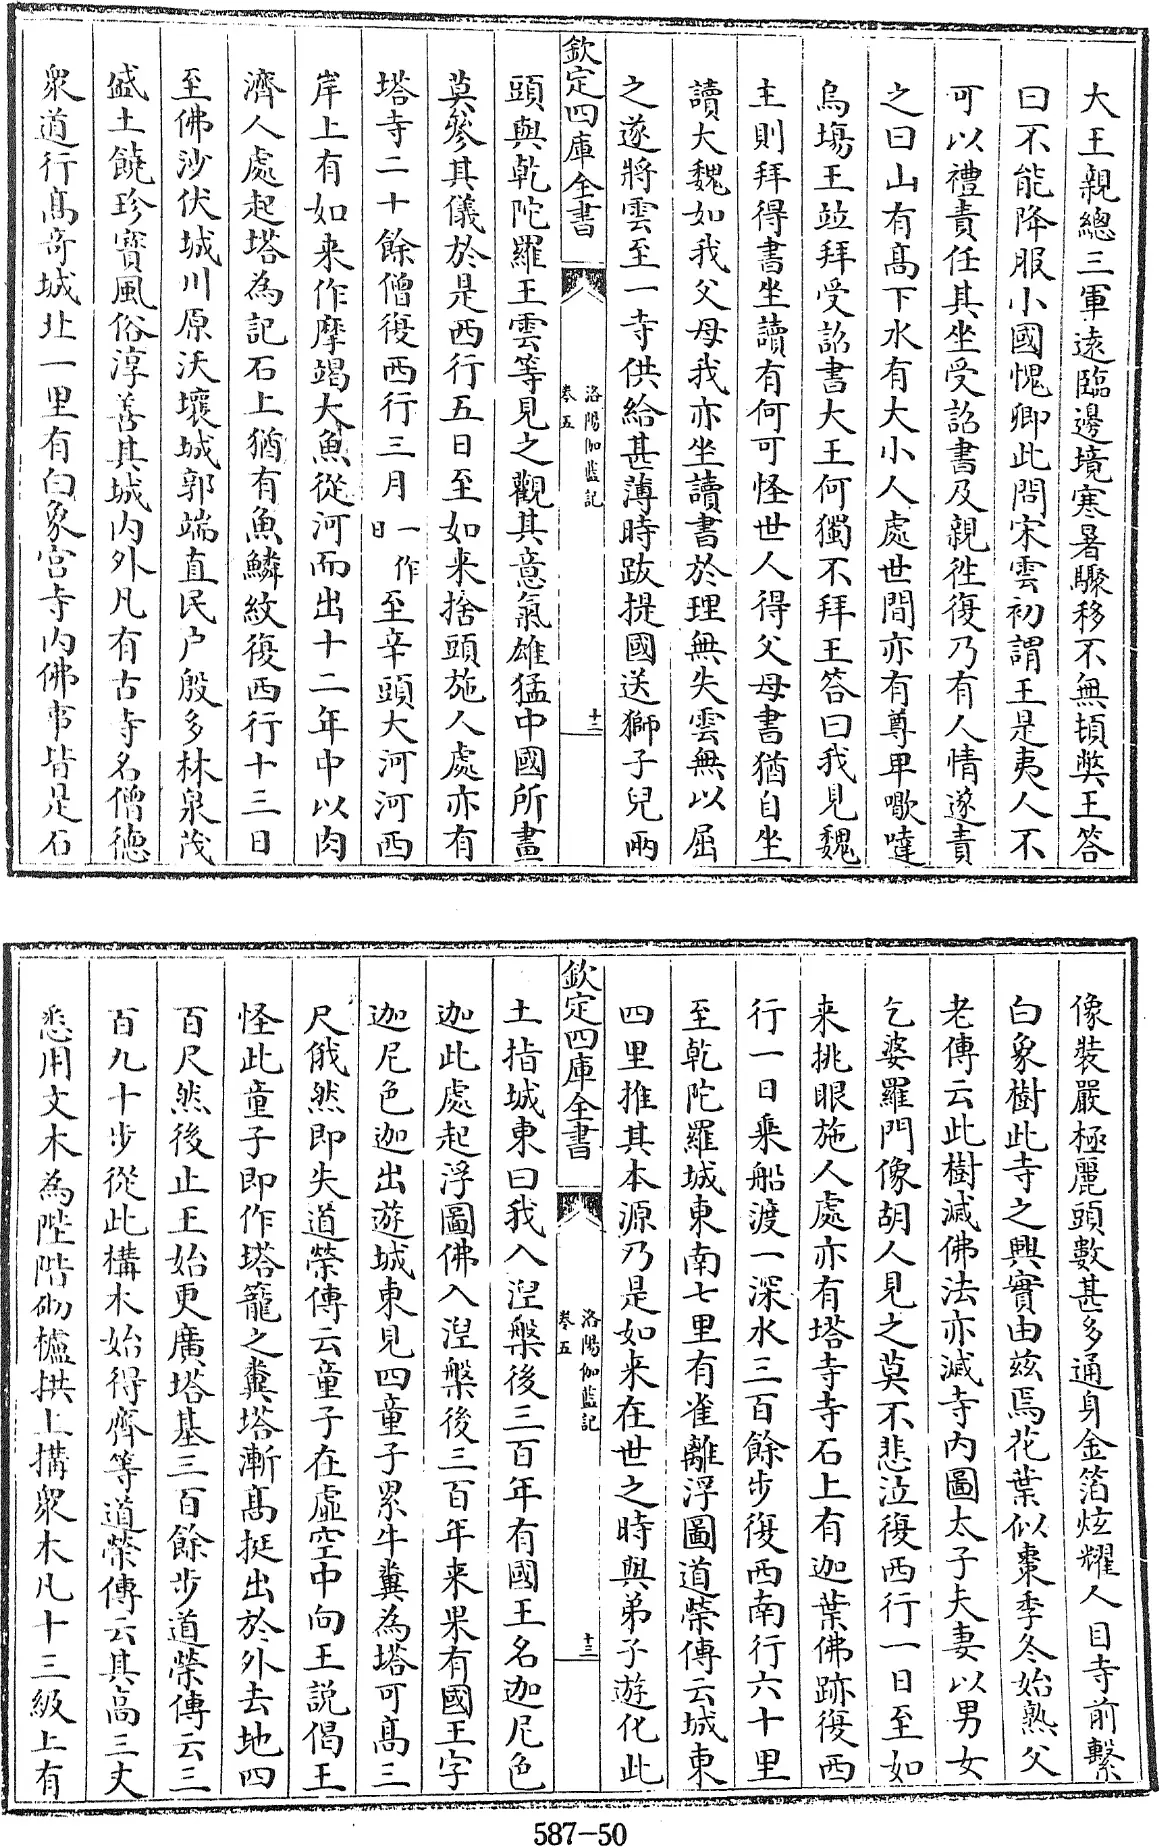 大王親總三軍遠臨邊境寒暑驟移不無頓弊王答
曰不能降服小國愧卿此問宋雲初謂王是夷人不
可以禮責任其坐受詔書及親徃復乃有人情遂責
之曰山有髙下水有大小人處世間亦有尊卑嚈噠
烏塲王竝拜受詔書大王何獨不拜王答曰我見魏
主則拜得書坐讀有何可怪世人得父母書猶自坐
讀大魏如我父母我亦坐讀書於理無失雲無以屈
之遂將雲至一寺供給甚薄時跋提國送獅子兒兩
欽定四庫全書
洛陽伽藍記
卷五
十二
頭與乾陀羅王雲等見之觀其意氣雄猛中國所畫
莫參其儀於是西行五日至如来捨頭施人處亦有
塔寺二十餘僧復西行三月一作日至辛頭大河河西
岸上有如来作摩竭大魚從河而出十二年中以肉
濟人處起塔為記石上猶有魚鱗紋復西行十三日
至佛沙伏城川原沃壤城郭端直民户殷多林泉茂
盛土饒珍寳風俗淳善其城内外凡有古寺名僧德
衆道行髙奇城北一里有白象宫寺内佛事皆是石
像裝嚴極麗頭數甚多通身金箔炫耀人目寺前繫
白象樹此寺之興實由兹焉花葉似棗季冬始熟父
老傳云此樹滅佛法亦滅寺内圖太子夫妻以男女
乞婆羅門像胡人見之莫不悲泣復西行一日至如
来挑眼施人處亦有塔寺寺石上有迦葉佛跡復西
行一日乘船渡一深水三百餘步復西南行六十里
至乾陀羅城東南七里有雀離浮圖道榮傳云城東
四里推其本源乃是如来在世之時與弟子遊化此
欽定四庫全書
洛陽伽藍記
卷五
十三
土指城東曰我入涅槃後三百年有國王名迦尼色
迦此處起浮圖佛入涅槃後三百年来果有國王字
迦尼色迦出遊城東見四童子累牛糞為塔可髙三
尺俄然即失道榮傳云童子在虚空中向王説偈王
怪此童子即作塔籠之糞塔漸髙挺出於外去地四
百尺然後止王始更廣塔基三百餘步道榮傳云三
百九十步從此構木始得齊等道榮傳云其高三丈
悉用文木為陛階砌櫨拱上搆衆木凡十三級上有
587-50